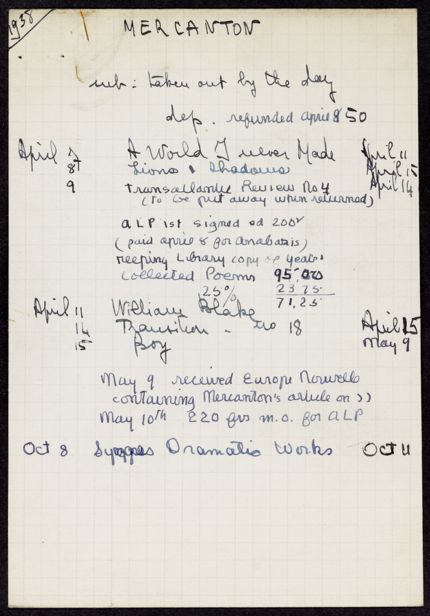 1938
MERCANTON
sub: taken out by the day
dep. refunded april 8 50
April 7 A World I never Made April 11
8 Lions & Shadows April 15
9 Transatlantic Review No 4 April 14
(to be put away when returned)
ALP 1st signed ed 200
(paid april 8 for Anabasis)
keeping Library copy of Yeats'
Collected Poems 95.00
25% 23 75
71,25
April 11 William Blake
14 Transition - no 18 April 15
15 Boy May 9
May 9 received Europe Nouvelle
containing Mercanton's article on JJ
May 10th 220 frs m.o. for ALP
Oct 8 Synges Dramatic Works Oct 11